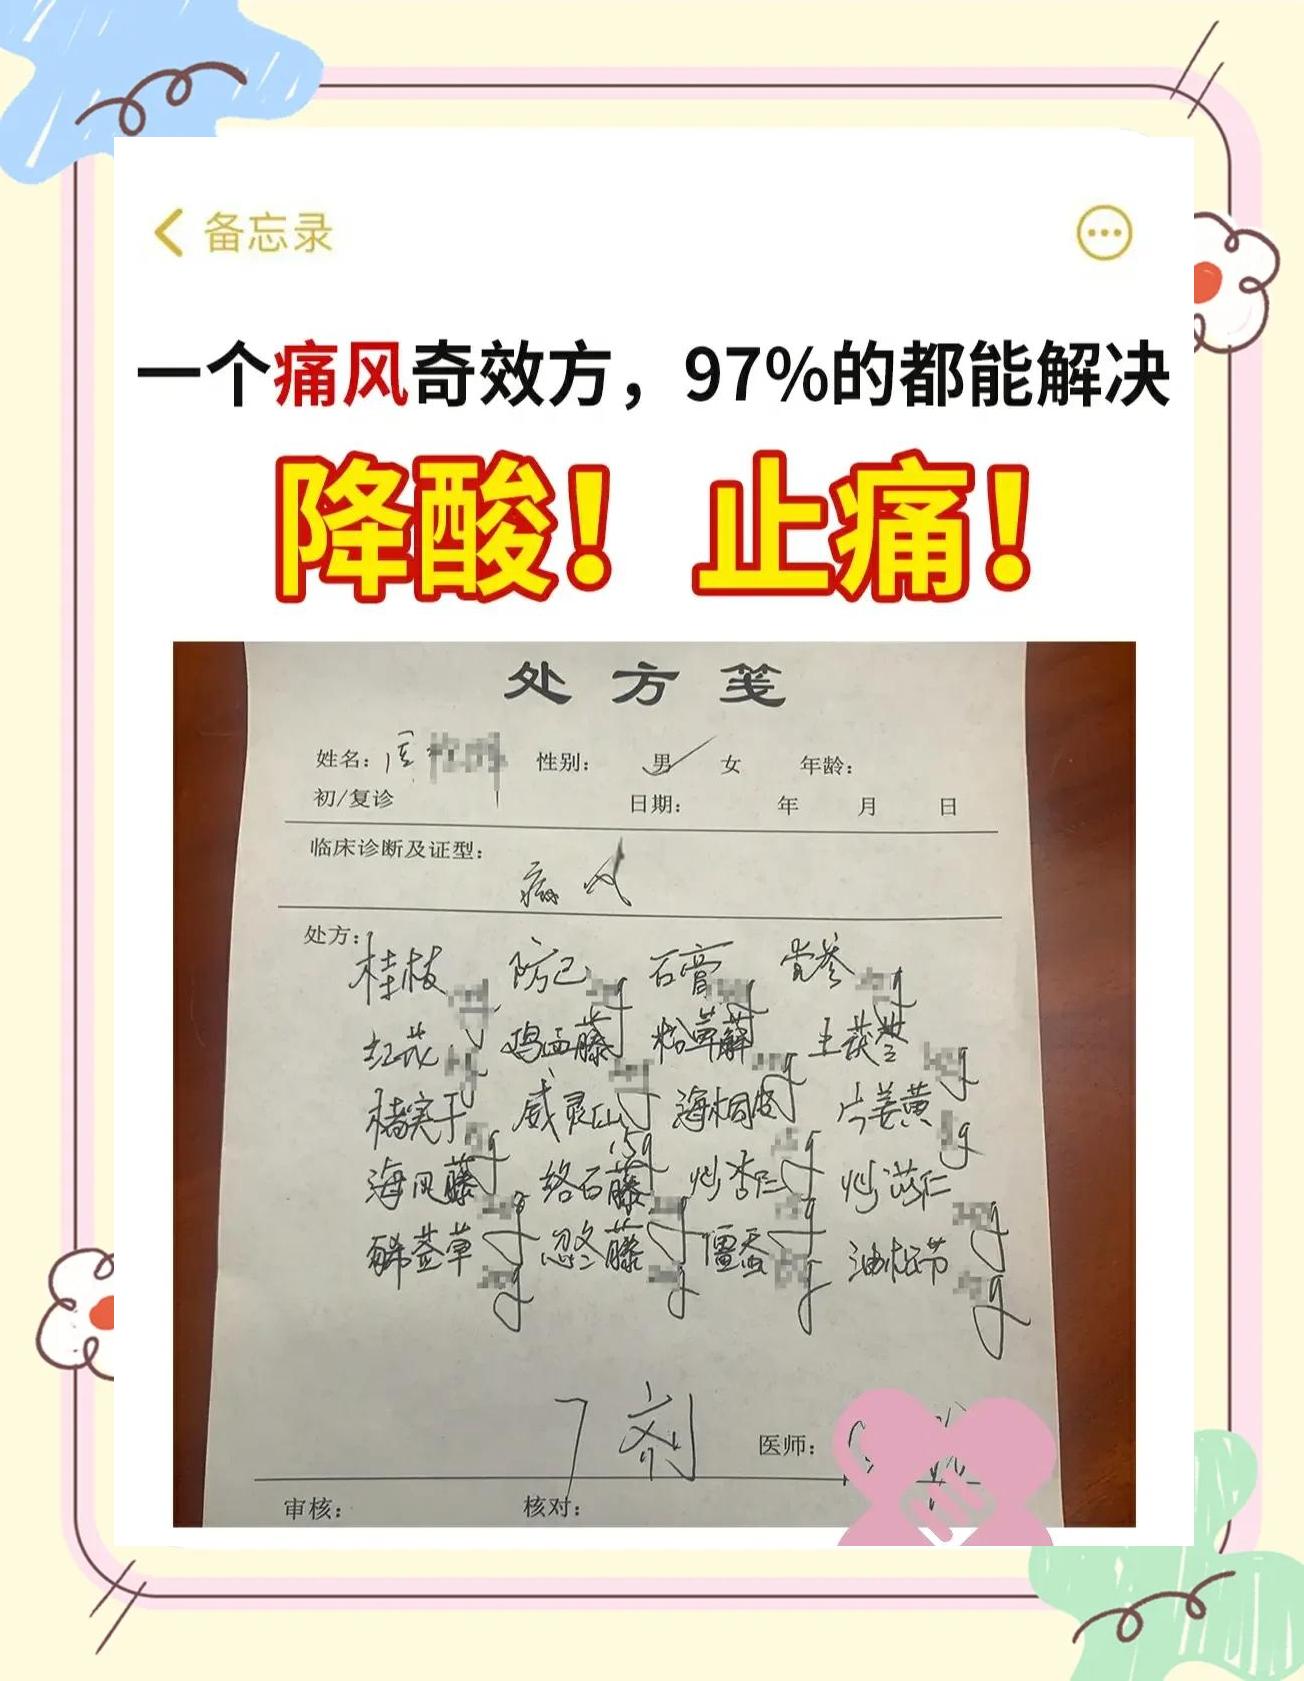 备忘录
一个痛风奇效方，97%的都能解决
降酸！止痛！
处方笺
姓名： 性别： 男 女 年龄：
初/复诊 日期： 年 月 日
临床诊断及证型：
痛风
处方：
桂枝 防己 石膏 党参
红花 鸡血藤 粉萆薢 土茯苓
楮实子 威灵仙 海桐皮 片姜黄
15g
海风藤 络石藤 炒杏仁 炒苡仁
豨莶草 忍冬藤 僵蚕 油松节
7剂
医师：
审核： 核对：